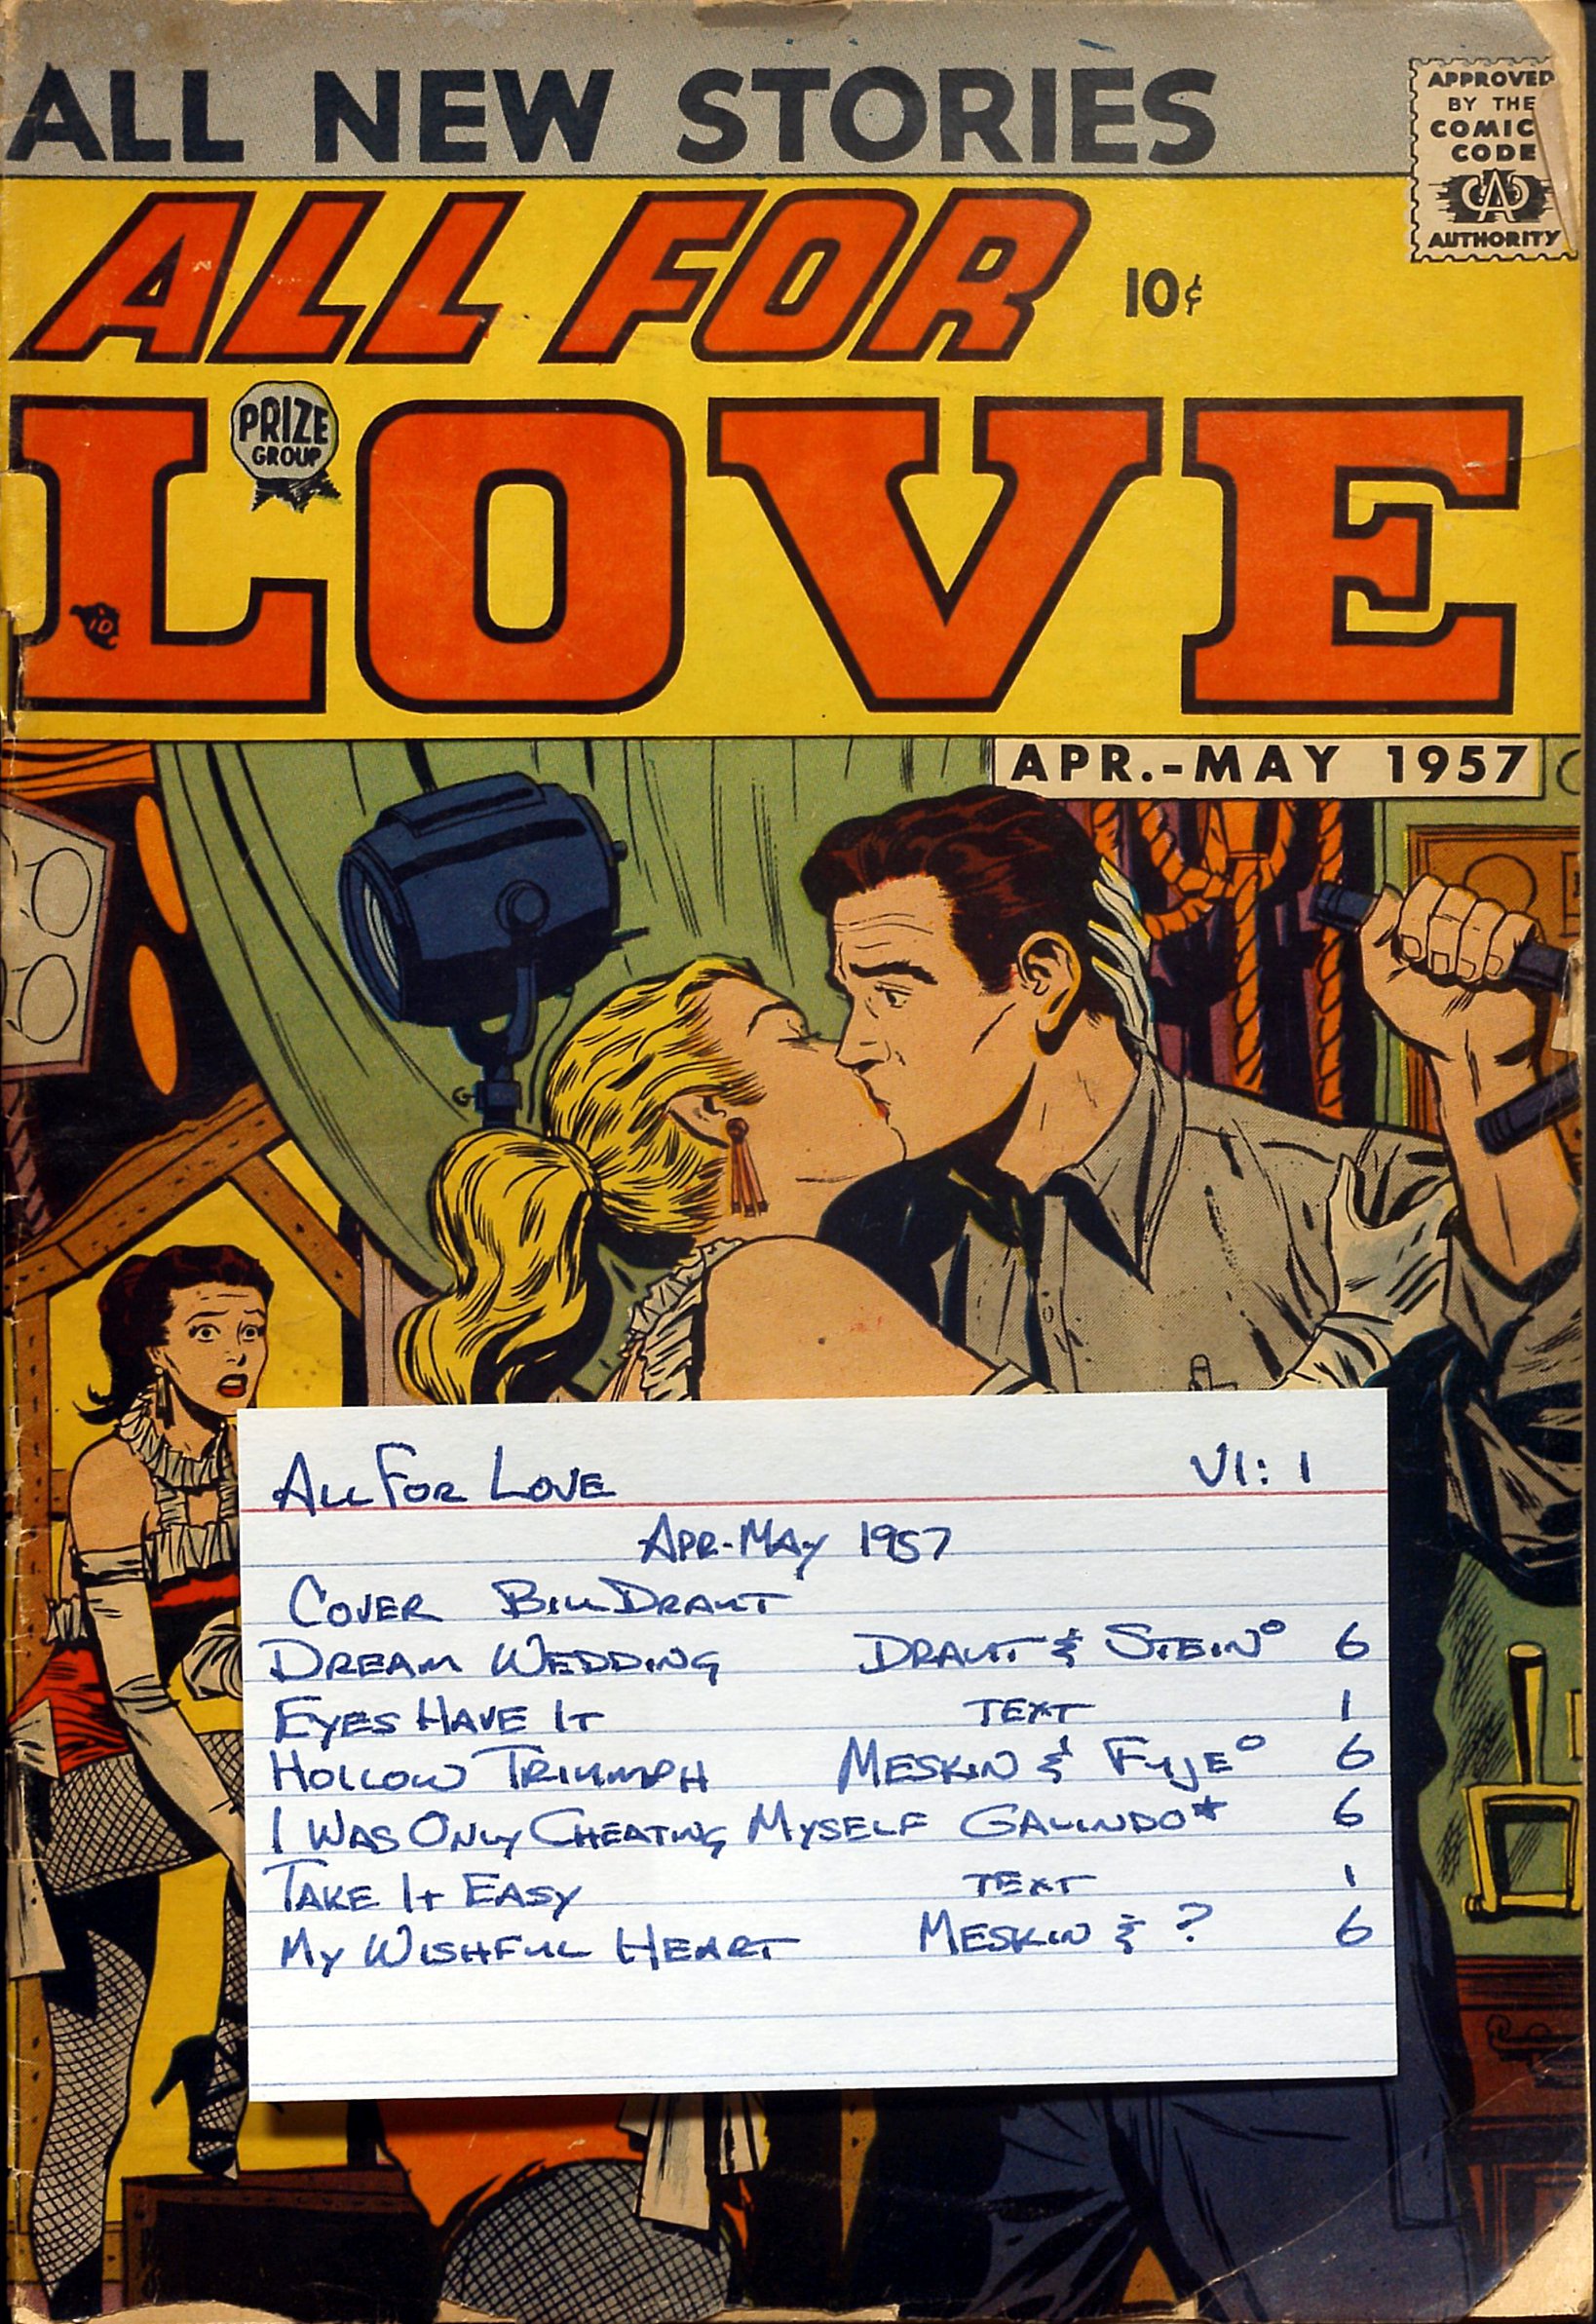 ALL NEW STORIES
APPROVED
BY THE
COMIC
CODE
CA
AUTHORITY
ALL FOR
10¢
PRIZE
GROUP
LOVE
10
APR.-MAY 1957
ALL FOR LOVE V1: 1
APR-MAY 1957
COVER BILL DRAUT
DREAM WEDDING DRAUT & STEIN° 6
EYES HAVE IT TEXT 1
HOLLOW TRIUMPH MESKIN & FUJE° 6
I WAS ONLY CHEATING MYSELF GALINDO* 6
TAKE IT EASY TEXT 1
MY WISHFUL HEART MESKIN & ? 6